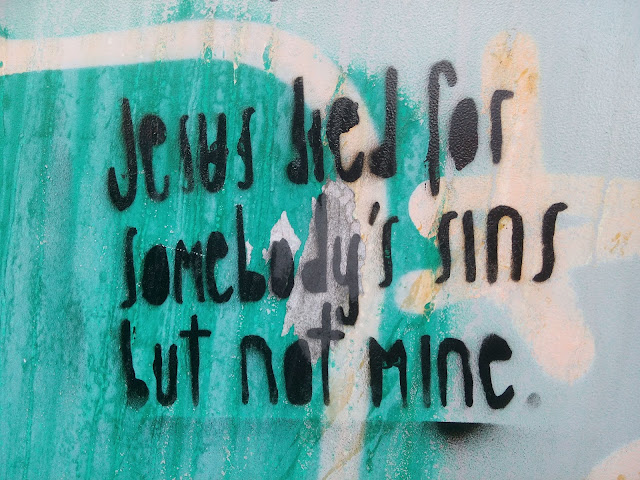 Jesus died for
somebody's sins
but not mine.